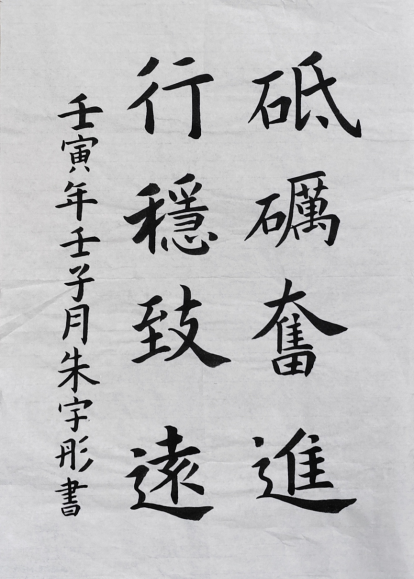 砥礪奮進
行穩致遠
壬寅年壬子月朱字彤書